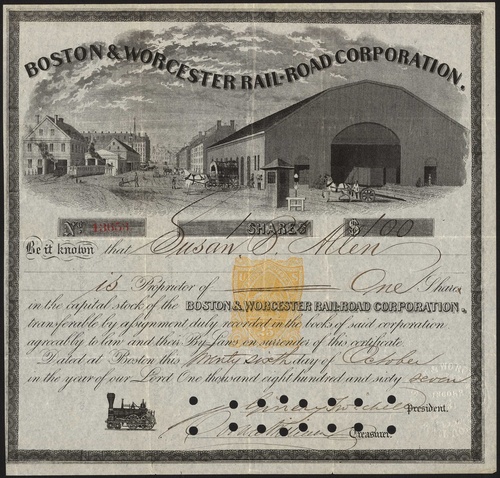 BOSTON & WORCESTER RAIL-ROAD CORPORATION.
No. 1 SHARES $100
Be it known that Susan E. Allen
is Proprietor of One Share
in the capital stock of the BOSTON & WORCESTER RAIL-ROAD CORPORATION,
transferible by assignment duly recorded in the books of said corporation
agreeably to law and their By Laws on surrender of this certificate
Dated at Boston this Twenty sixth day of October
in the year of our Lord One thousand eight hundred and sixty seven
President.
Treasurer.